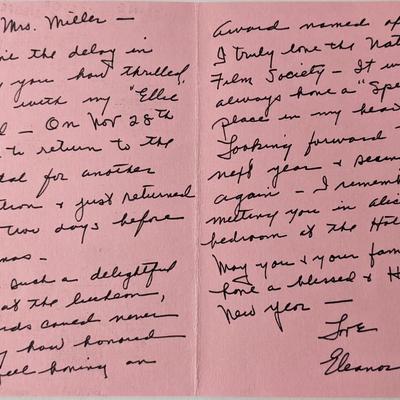 Mrs. Miller —
the delay in
you how thrilled
with my "Ellie
— On Nov 28th
to return to the
for another
& just returned
two days before
such a delightful
at the luncheon,
never
how honored
feel having an
award named af
I truly love the Nat
Film Society — It w
always have a "Spe
place in my hear
Looking forward
next year & seein
again — I rememb
meeting you in alic
bedroom at the Hol
May you & your fam
have a blessed & H
New Year —
Love
Eleanor